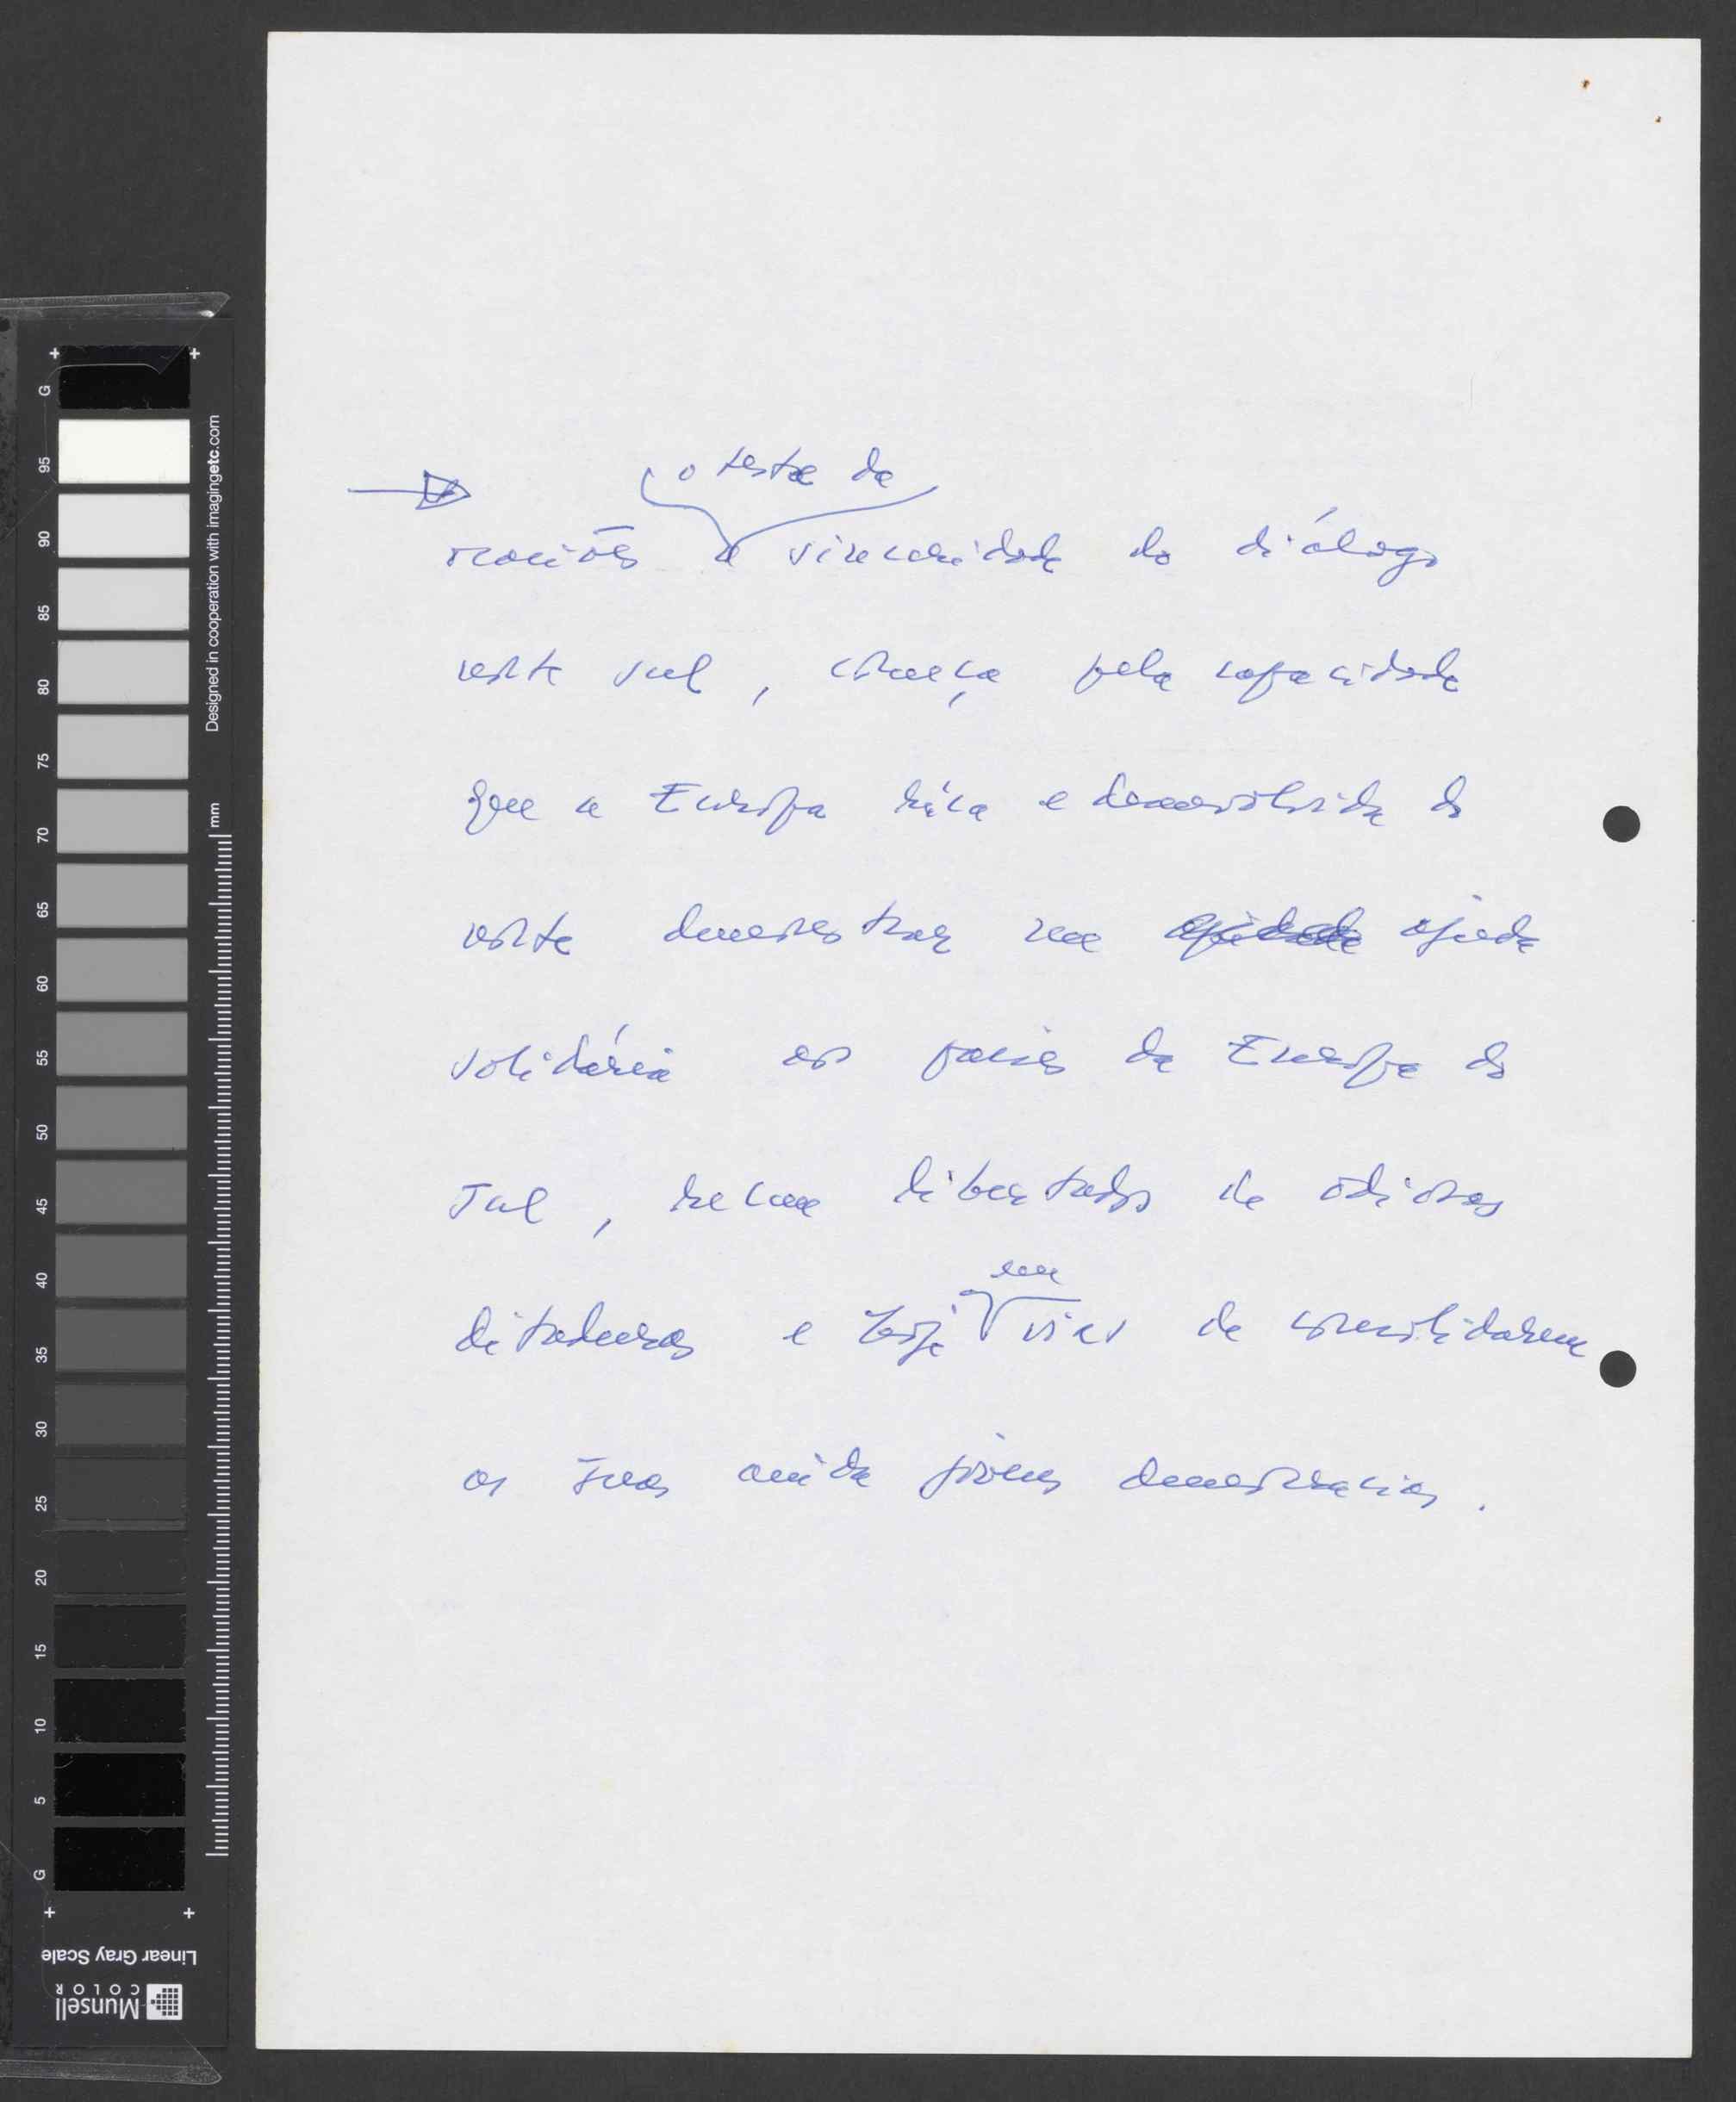 o teste da
nações a sinceridade do diálogo
norte sul, começa pela capacidade
que a Europa rica e desenvolvida do
norte demonstrar na ajuda
solidária aos países da Europa do
Sul, recem libertados de odiosas
ditaduras e hoje em vias de consolidarem
as suas ainda jovens democracias.
+ G 95 90 85 80 75 70 65 60 55 50 45 40 35 30 25 20 15 10 5 G +
Designed in cooperation with imagingetc.com
mm
Linear Gray Scale
Munsell
COLOR